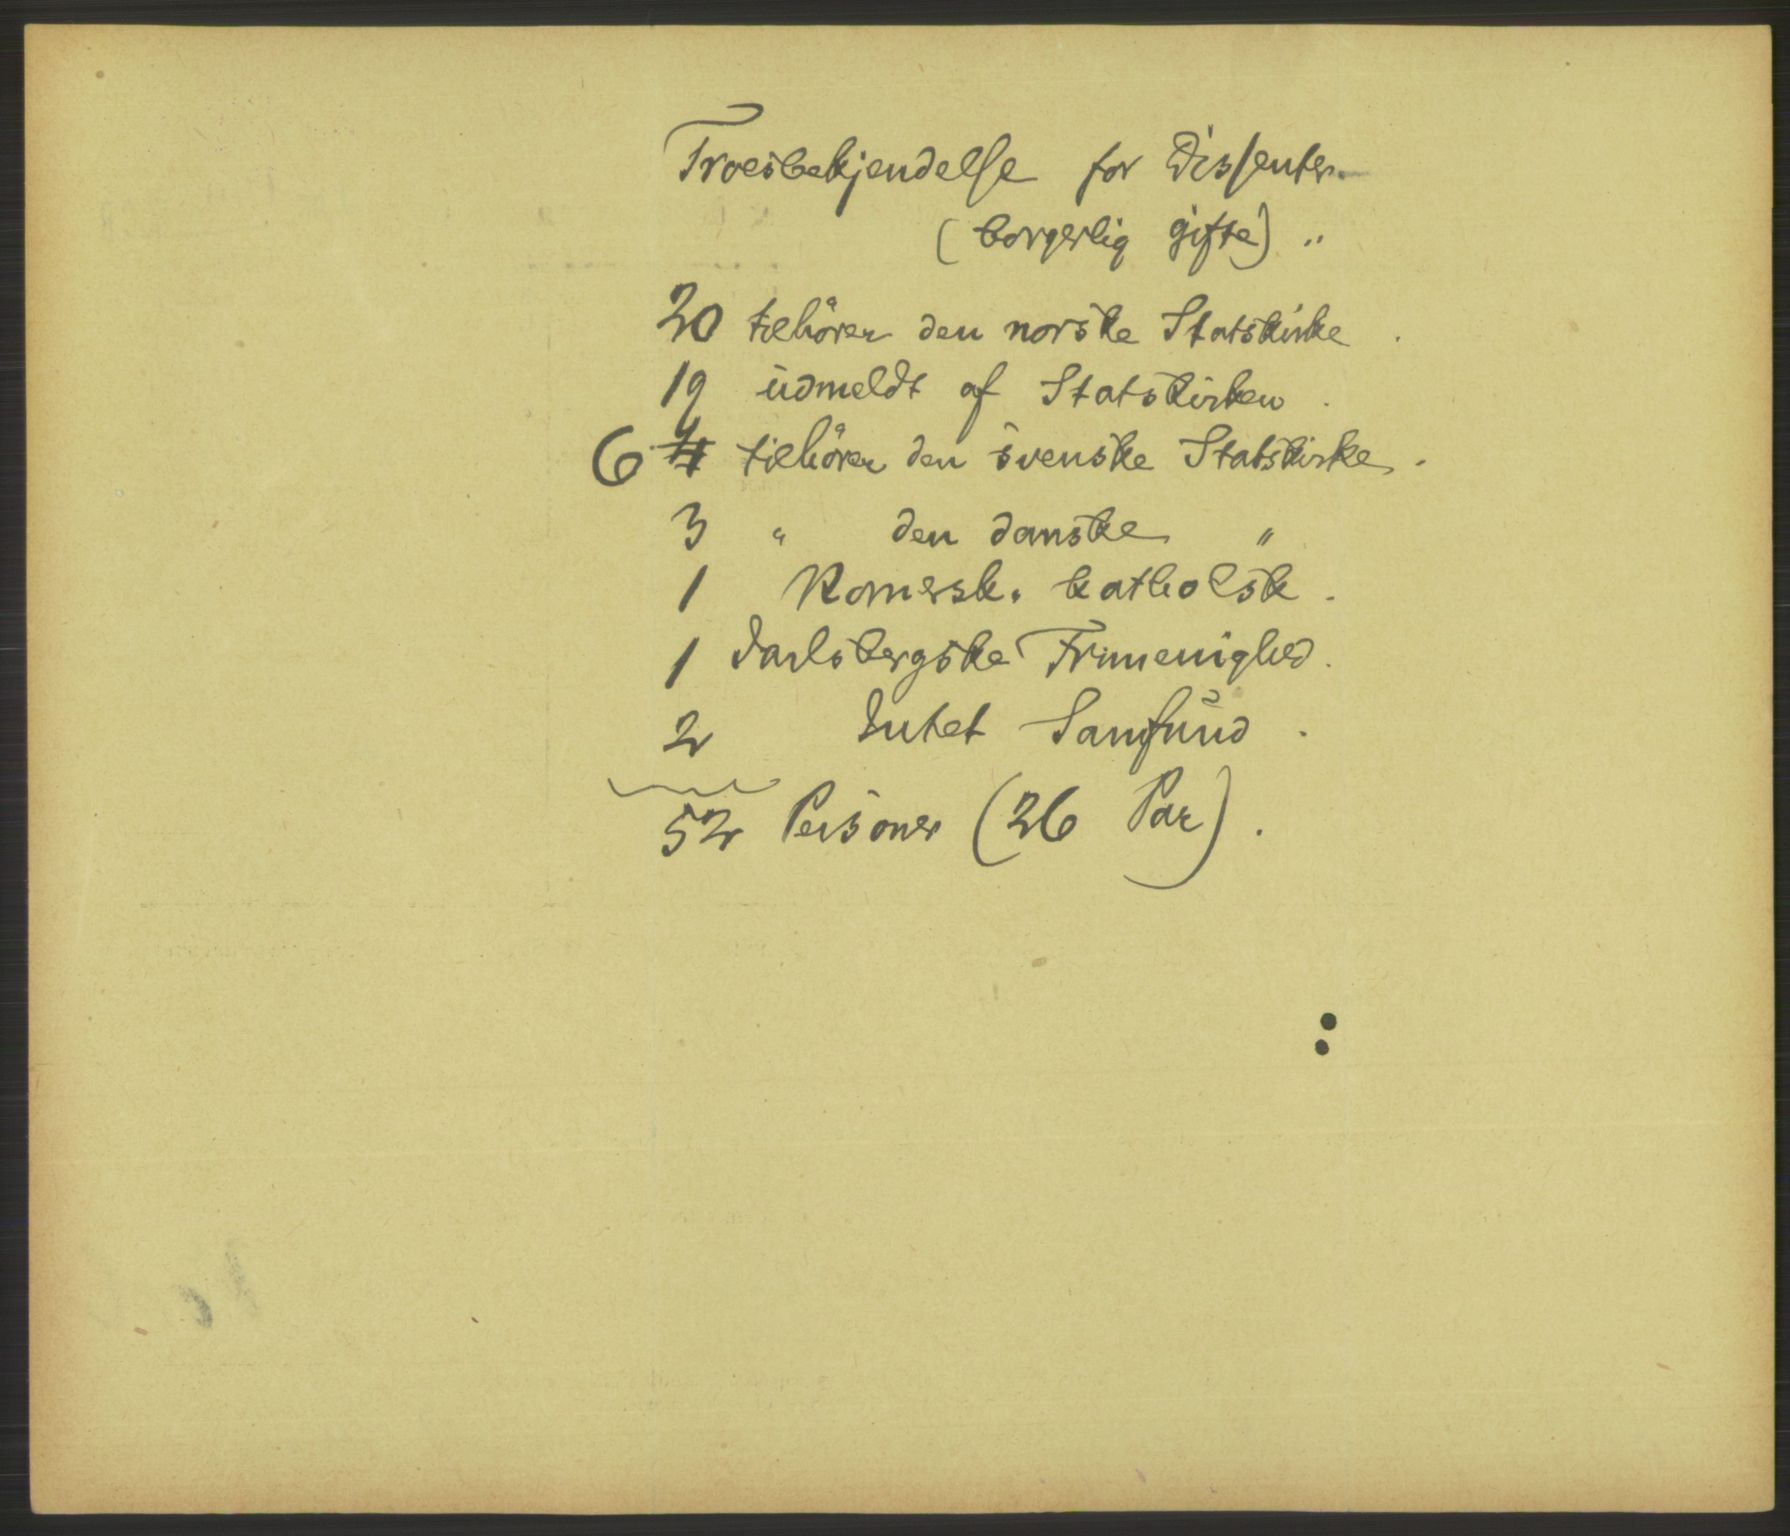 Troesbekjendelse for Dissenter
(borgerlig gifte) "
20 tilhörer den norske Statskirke .
19 udmeldt af Statskirken .
6 4 tilhörer den svenske Statskirke .
3 " den danske "
1 Romersk. katholsk .
1 Jarlsbergske Frimenighed .
2 Intet Samfund .
52 Personer (26 Par) .